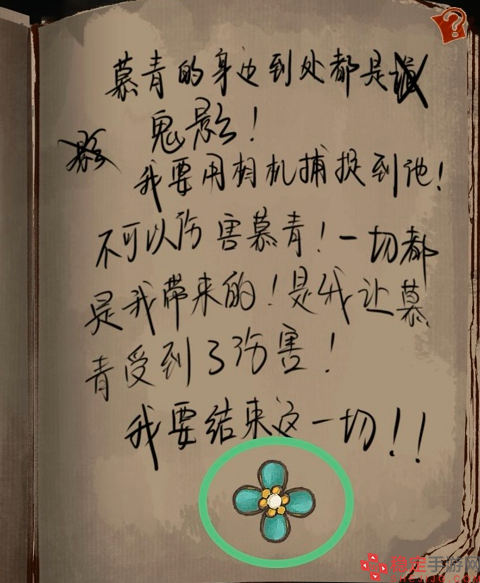 慕青的身边到处都是
鬼影！
我要用相机捕捉到他！
不可以伤害慕青！一切都
是我带来的！是我让慕
青受到了伤害！
我要结束这一切！！
?
手游网